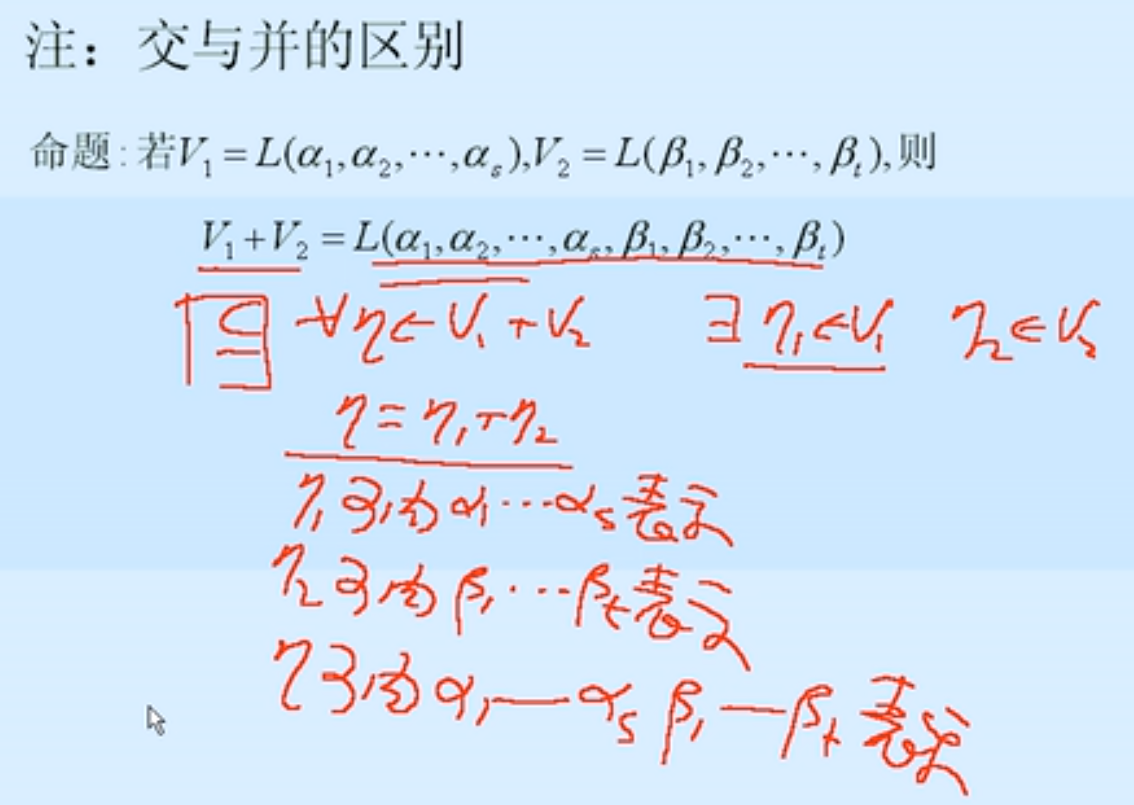 注：交与并的区别
命题:若V₁=L(α₁,α₂,⋯,αₛ),V₂=L(β₁,β₂,⋯,βₜ),则
V₁+V₂=L(α₁,α₂,⋯,αₛ,β₁,β₂,⋯,βₜ)
⊆ ∀η∈V₁+V₂ ∃η₁∈V₁ η₂∈V₂
η=η₁+η₂
η₁可由α₁⋯αₛ表示
η₂可由β₁⋯βₜ表示
η可由α₁—αₛ β₁—βₜ表示